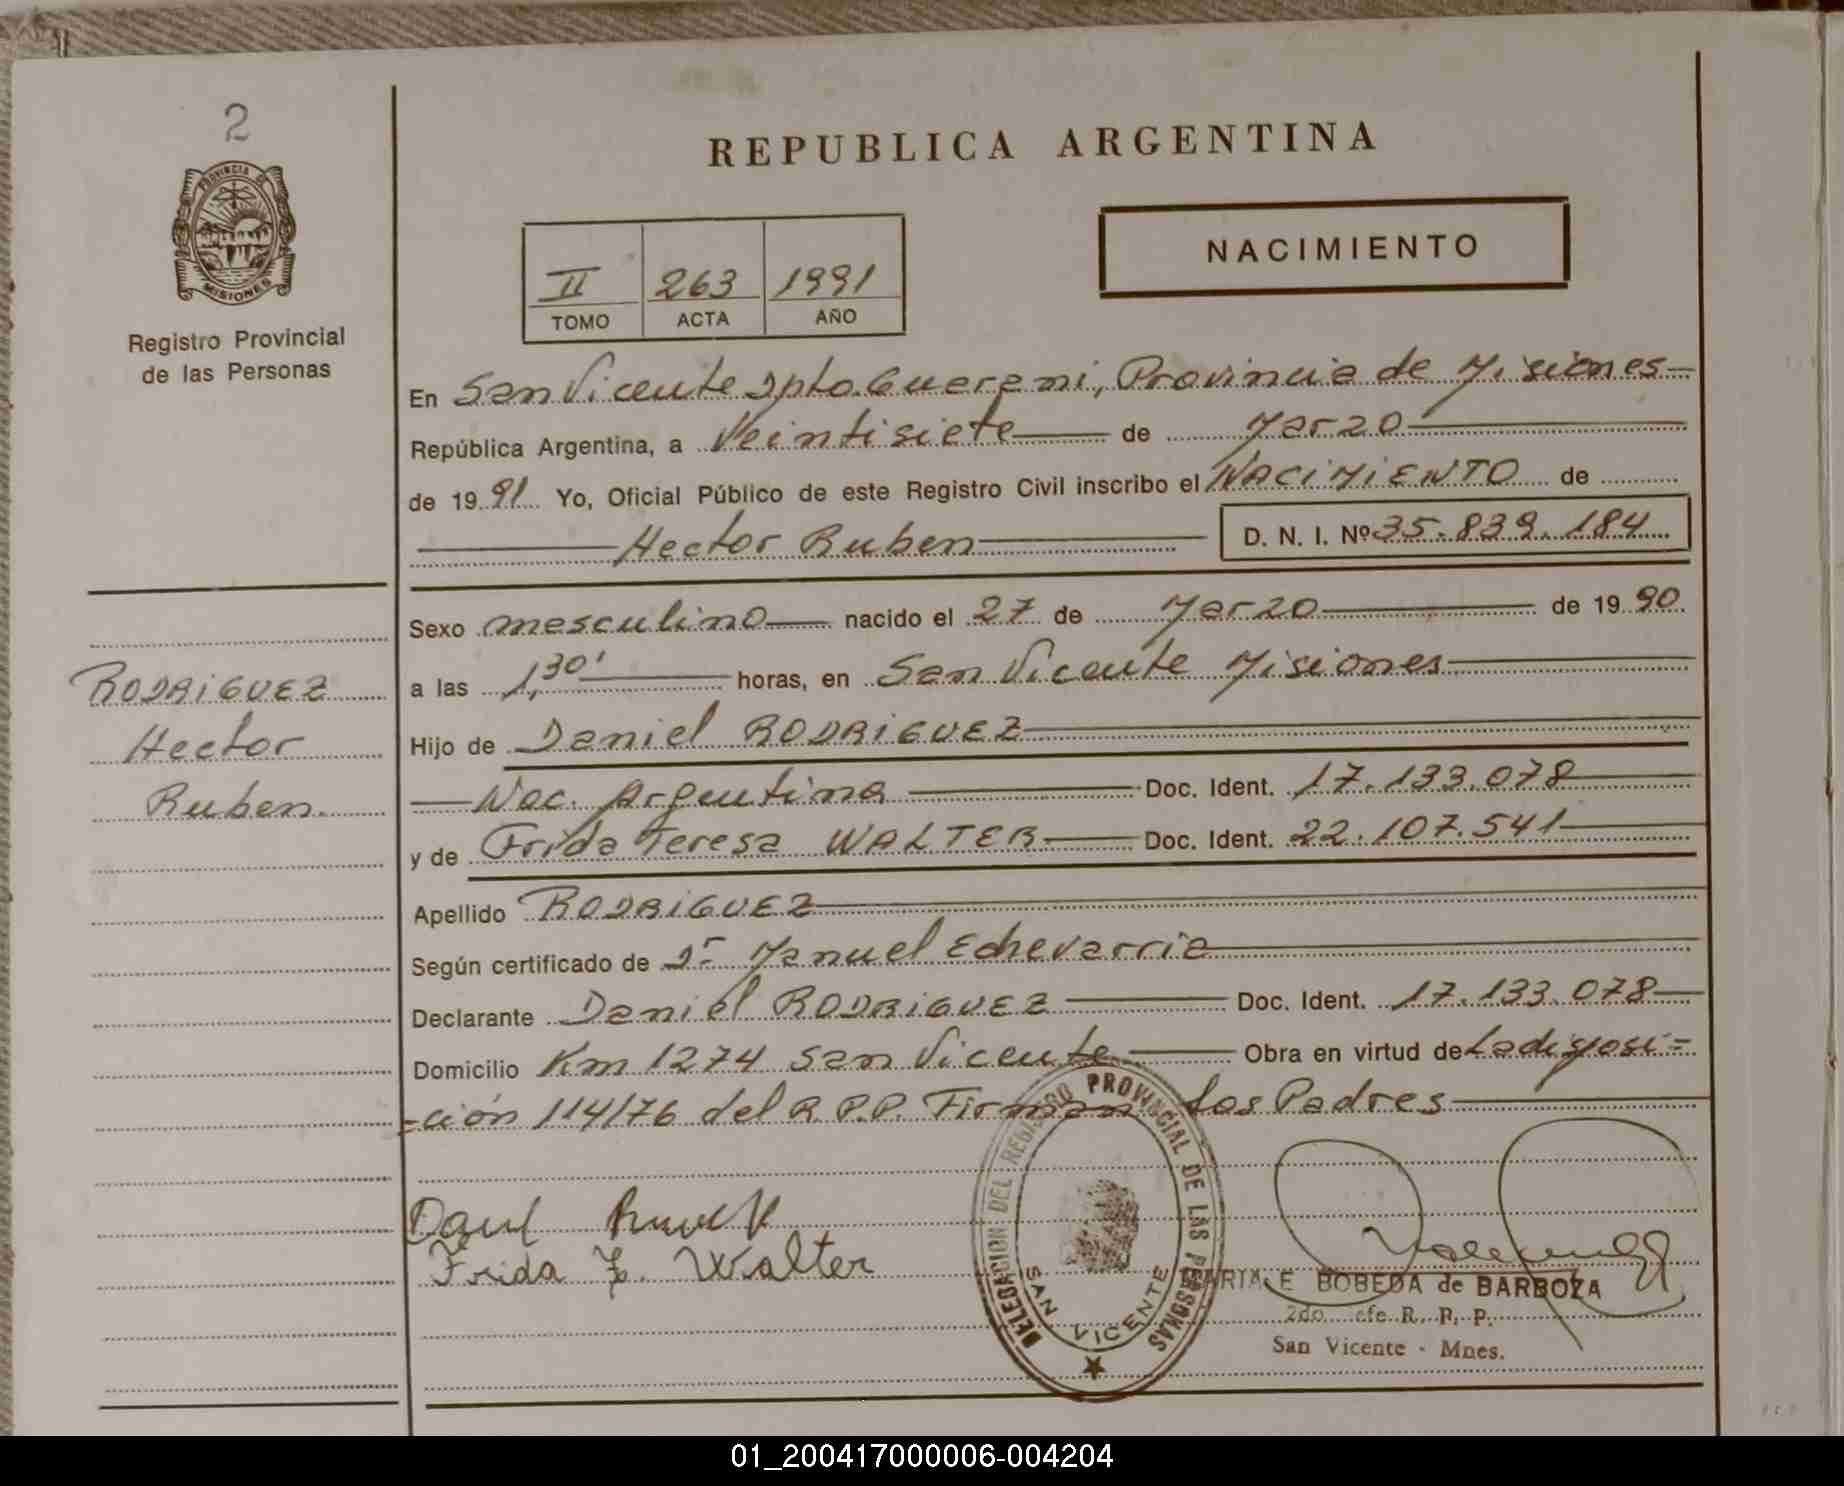 2
PROVINCIA DE
MISIONES
Registro Provincial
de las Personas
REPUBLICA ARGENTINA
NACIMIENTO
II 263 1991
TOMO ACTA AÑO
En San Vicente Dpto. Guarani, Provincia de Misiones
República Argentina, a Veintisiete de Marzo
de 1991 Yo, Oficial Público de este Registro Civil inscribo el NACIMIENTO de
Hector Ruben D. N. I. Nº 35.839.184
Sexo masculino nacido el 27 de Marzo de 1990
a las 1,30' horas, en San Vicente Misiones
Hijo de Daniel RODRIGUEZ
Nac. Argentina Doc. Ident. 17.133.078
y de Frida Teresa WALTER Doc. Ident. 22.107.541
Apellido RODRIGUEZ
Según certificado de Dr Manuel Echevarria
Declarante Daniel RODRIGUEZ Doc. Ident. 17.133.078
Domicilio Km 1274 San Vicente Obra en virtud de La disposi=
=ción 114/76 del R.P.P. Firman Los Padres
RODRIGUEZ
Hector
Ruben.
Frida T. Walter
DELEGACION DEL REGISTRO PROVINCIAL DE LAS PERSONAS
SAN VICENTE
MARIA E BOBEDA de BARBOZA
2do. Jefe R. P. P.
San Vicente - Mnes.
01_200417000006-004204